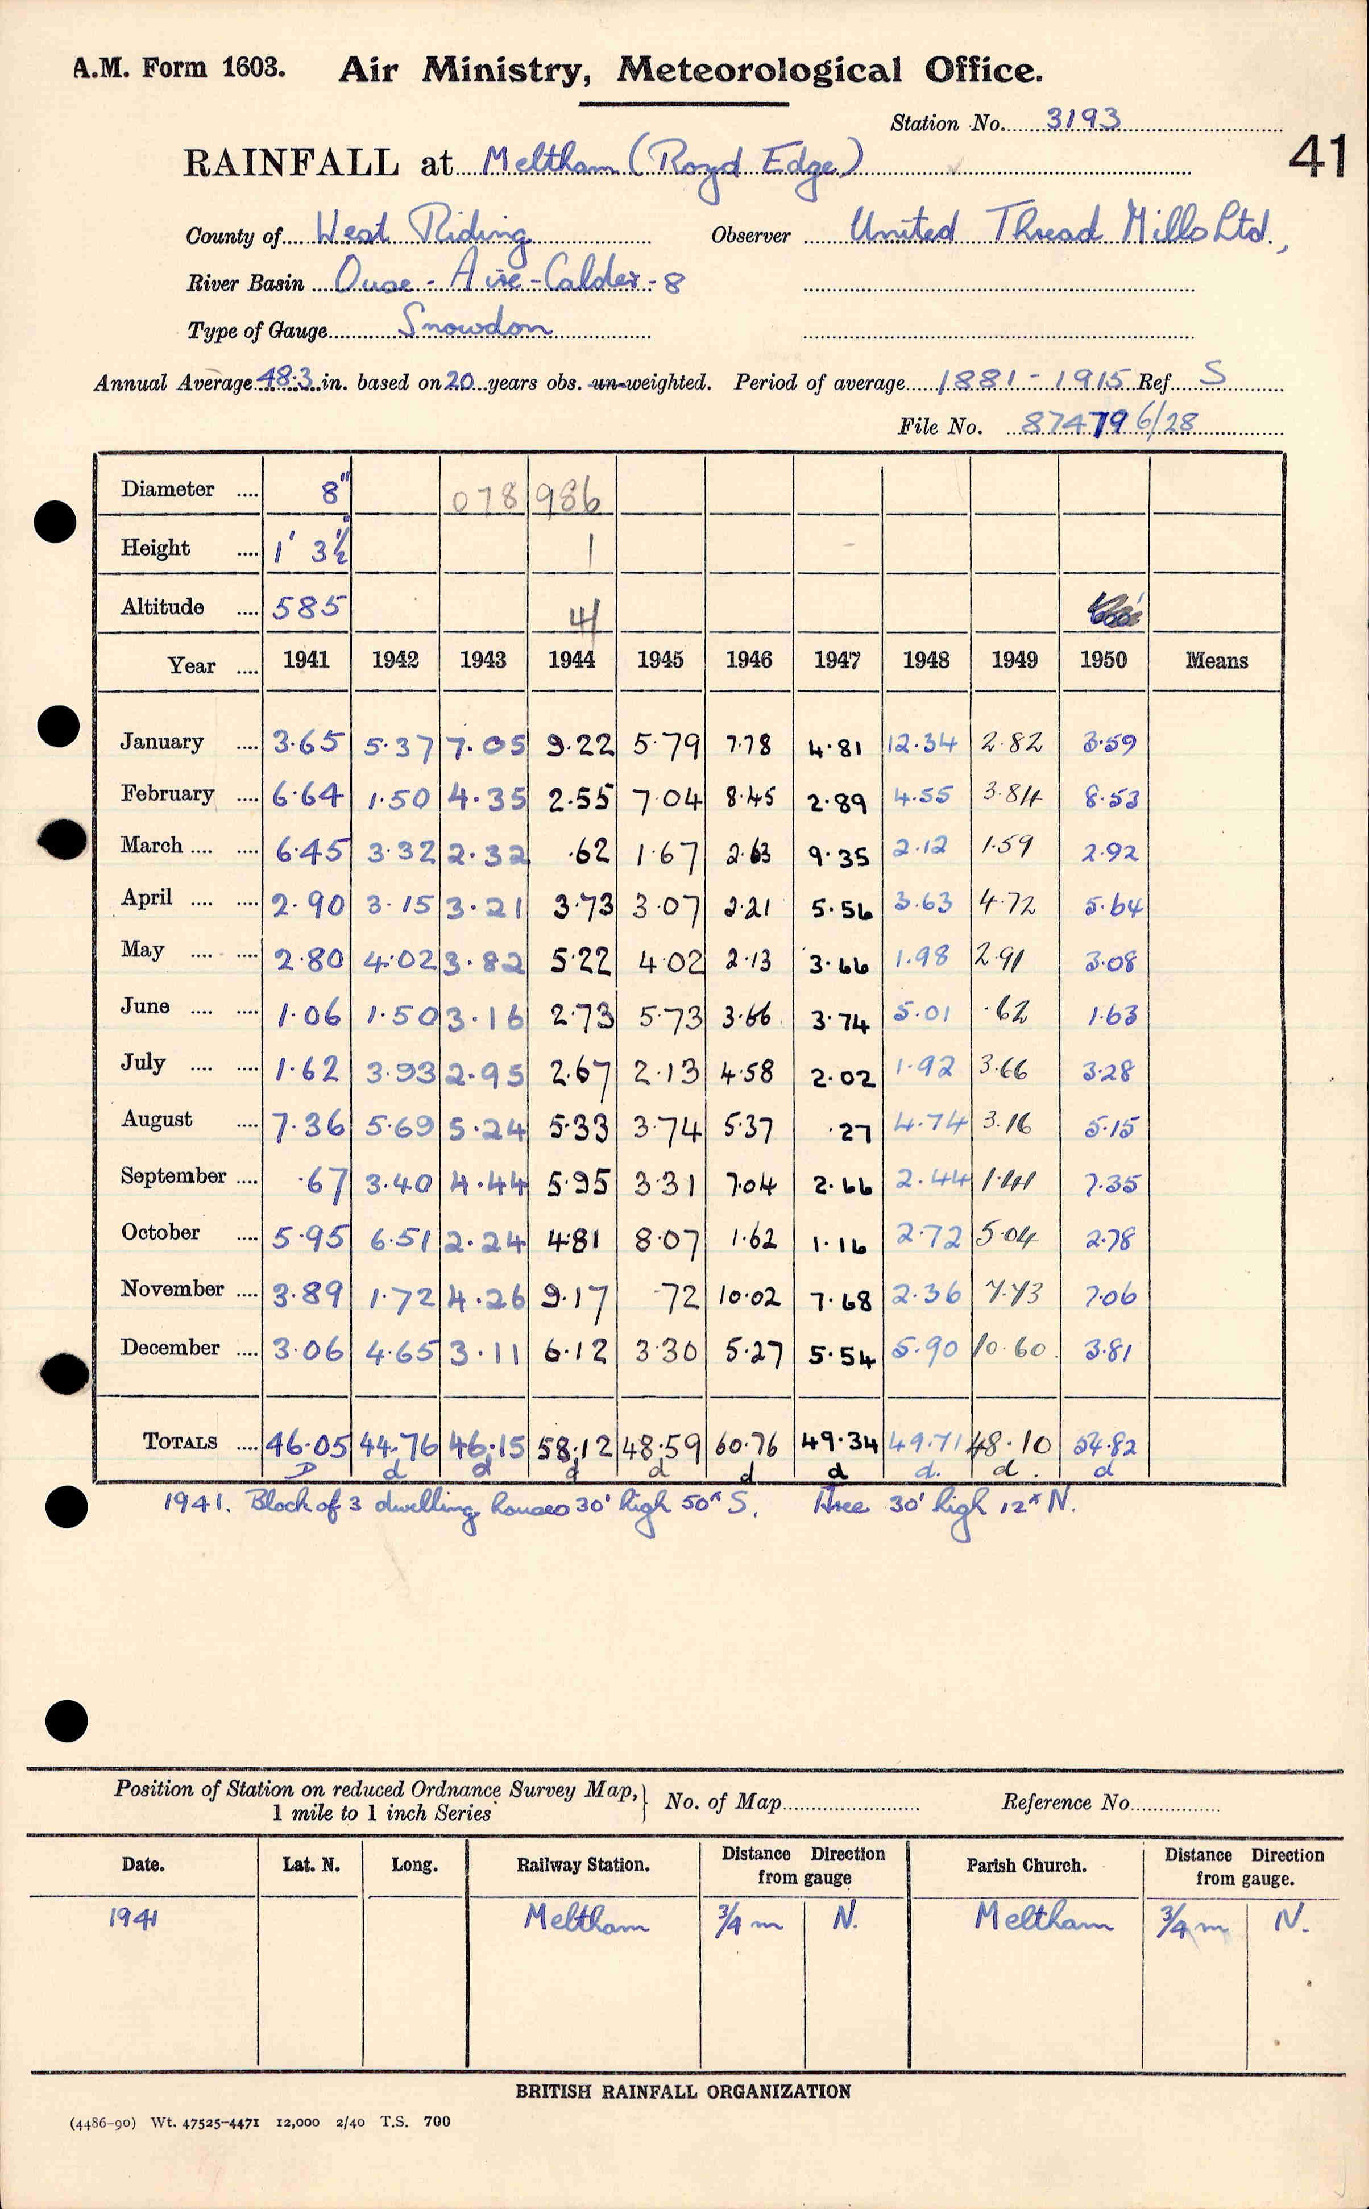 A.M. Form 1603. Air Ministry, Meteorological Office.
Station No. 3193
41
RAINFALL at Meltham (Royd Edge)
County of West Riding Observer United Thread Mills Ltd.,
River Basin Ouse - Aire - Calder - 8
Type of Gauge Snowdon
Annual Average 48.3 in. based on 20 years obs. un-weighted. Period of average 1881 - 1915 Ref. S
File No. 874796/28
Diameter .... 8" 078 986
Height .... 1' 3½" 1
Altitude .... 585 41
Year .... 1941 1942 1943 1944 1945 1946 1947 1948 1949 1950 Means
January .... 3.65 5.37 7.05 9.22 5.79 7.78 4.81 12.34 2.82 3.59
February .... 6.64 1.50 4.35 2.55 7.04 8.45 2.89 4.55 3.84 8.53
March .... .... 6.45 3.32 2.32 .62 1.67 2.63 9.35 2.12 1.59 2.92
April .... .... 2.90 3.15 3.21 3.73 3.07 2.21 5.56 3.63 4.72 5.64
May .... .... 2.80 4.02 3.82 5.22 4.02 2.13 3.66 1.98 2.91 3.08
June .... .... 1.06 1.50 3.16 2.73 5.73 3.66 3.74 5.01 .62 1.63
July .... .... 1.62 3.93 2.95 2.67 2.13 4.58 2.02 1.92 3.66 3.28
August .... 7.36 5.69 5.24 5.33 3.74 5.37 .27 4.74 3.16 5.15
September .... .67 3.40 4.44 5.95 3.31 7.04 2.66 2.44 1.41 7.35
October .... 5.95 6.51 2.24 4.81 8.07 1.62 1.16 2.72 5.04 2.78
November .... 3.89 1.72 4.26 9.17 .72 10.02 7.68 2.36 7.73 7.06
December .... 3.06 4.65 3.11 6.12 3.30 5.27 5.54 5.90 10.60 3.81
TOTALS .... 46.05 44.76 46.15 58.12 48.59 60.76 49.34 49.71 48.10 54.82
D d d d d d d d. d. d
1941. Block of 3 dwelling houses 30' high 50ˣ S. Tree 30' high 12ˣ N.
Position of Station on reduced Ordnance Survey Map, 1 mile to 1 inch Series } No. of Map Reference No.
Date. Lat. N. Long. Railway Station. Distance Direction from gauge Parish Church. Distance Direction from gauge.
1941 Meltham ¾ m N. Meltham ¾ m N.
BRITISH RAINFALL ORGANIZATION
(4486-90) Wt. 47525-4471 12,000 2/40 T.S. 700